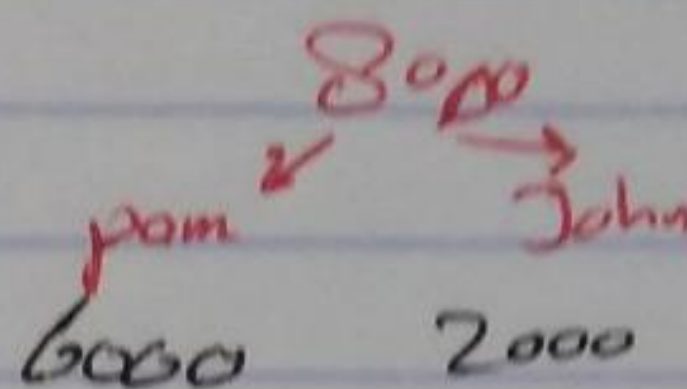 8000
pam John
6000 2000